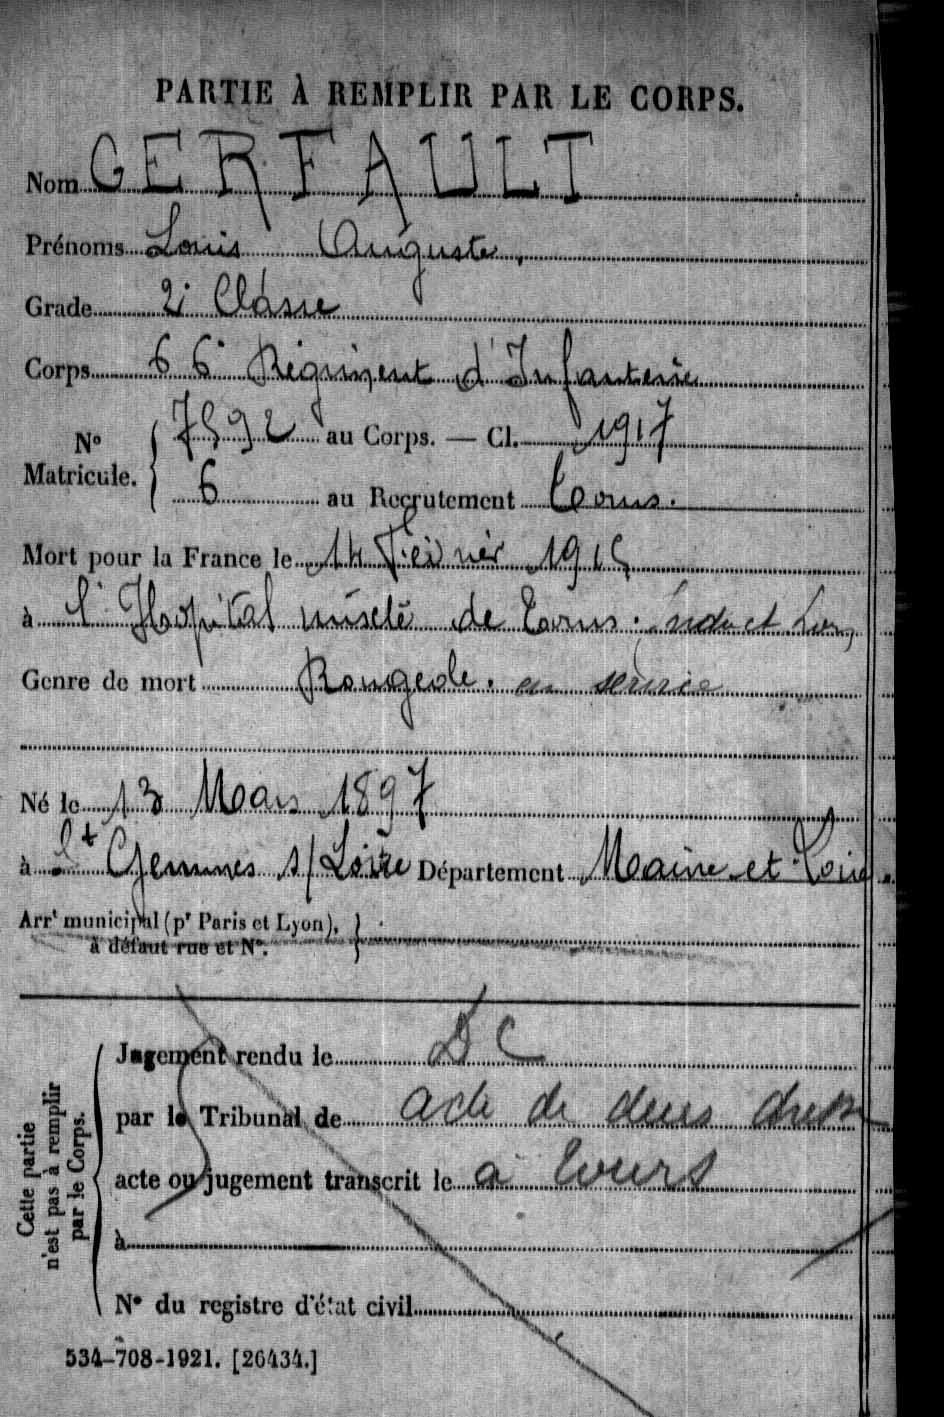 PARTIE À REMPLIR PAR LE CORPS.
Nom GERFAULT
Prénoms Louis Auguste,
Grade 2e Classe
Corps 66e Régiment d'Infanterie
No Matricule. { 7592 au Corps. — Cl. 1917
6 au Recrutement Tours.
Mort pour la France le 14 Février 1915
à l'Hopital mixte de Tours. Indre et Loire
Genre de mort Rougeole. en service
Né le 13 Mars 1897
à St Gemmes s/Loire Département Maine-et-Loire.
Arrt municipal (pr Paris et Lyon), à défaut rue et No. }
Cette partie n'est pas à remplir par le Corps.
Jugement rendu le DC
par le Tribunal de acte de deces
acte ou jugement transcrit le à Tours
à
No du registre d'état civil
534-708-1921. [26434.]